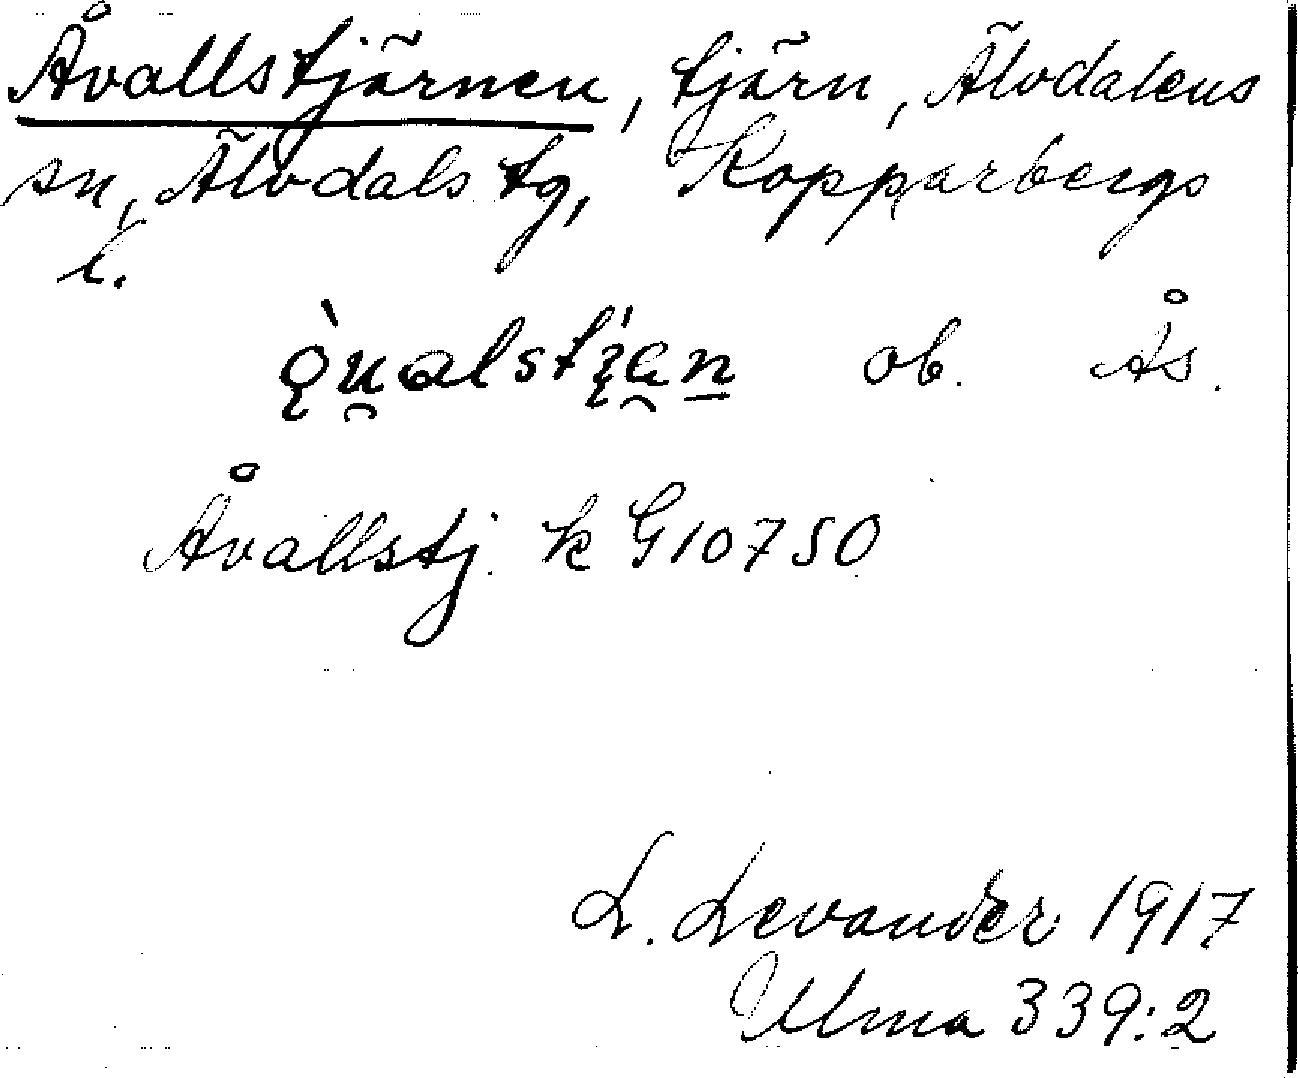 Åvallstjärnen, tjärn, Älvdalens
sn, Älvdals tg, Kopparbergs
l.
ob. Ås.
Åvallstj. k G10750
L. Levander 1917
Ulma 339:2